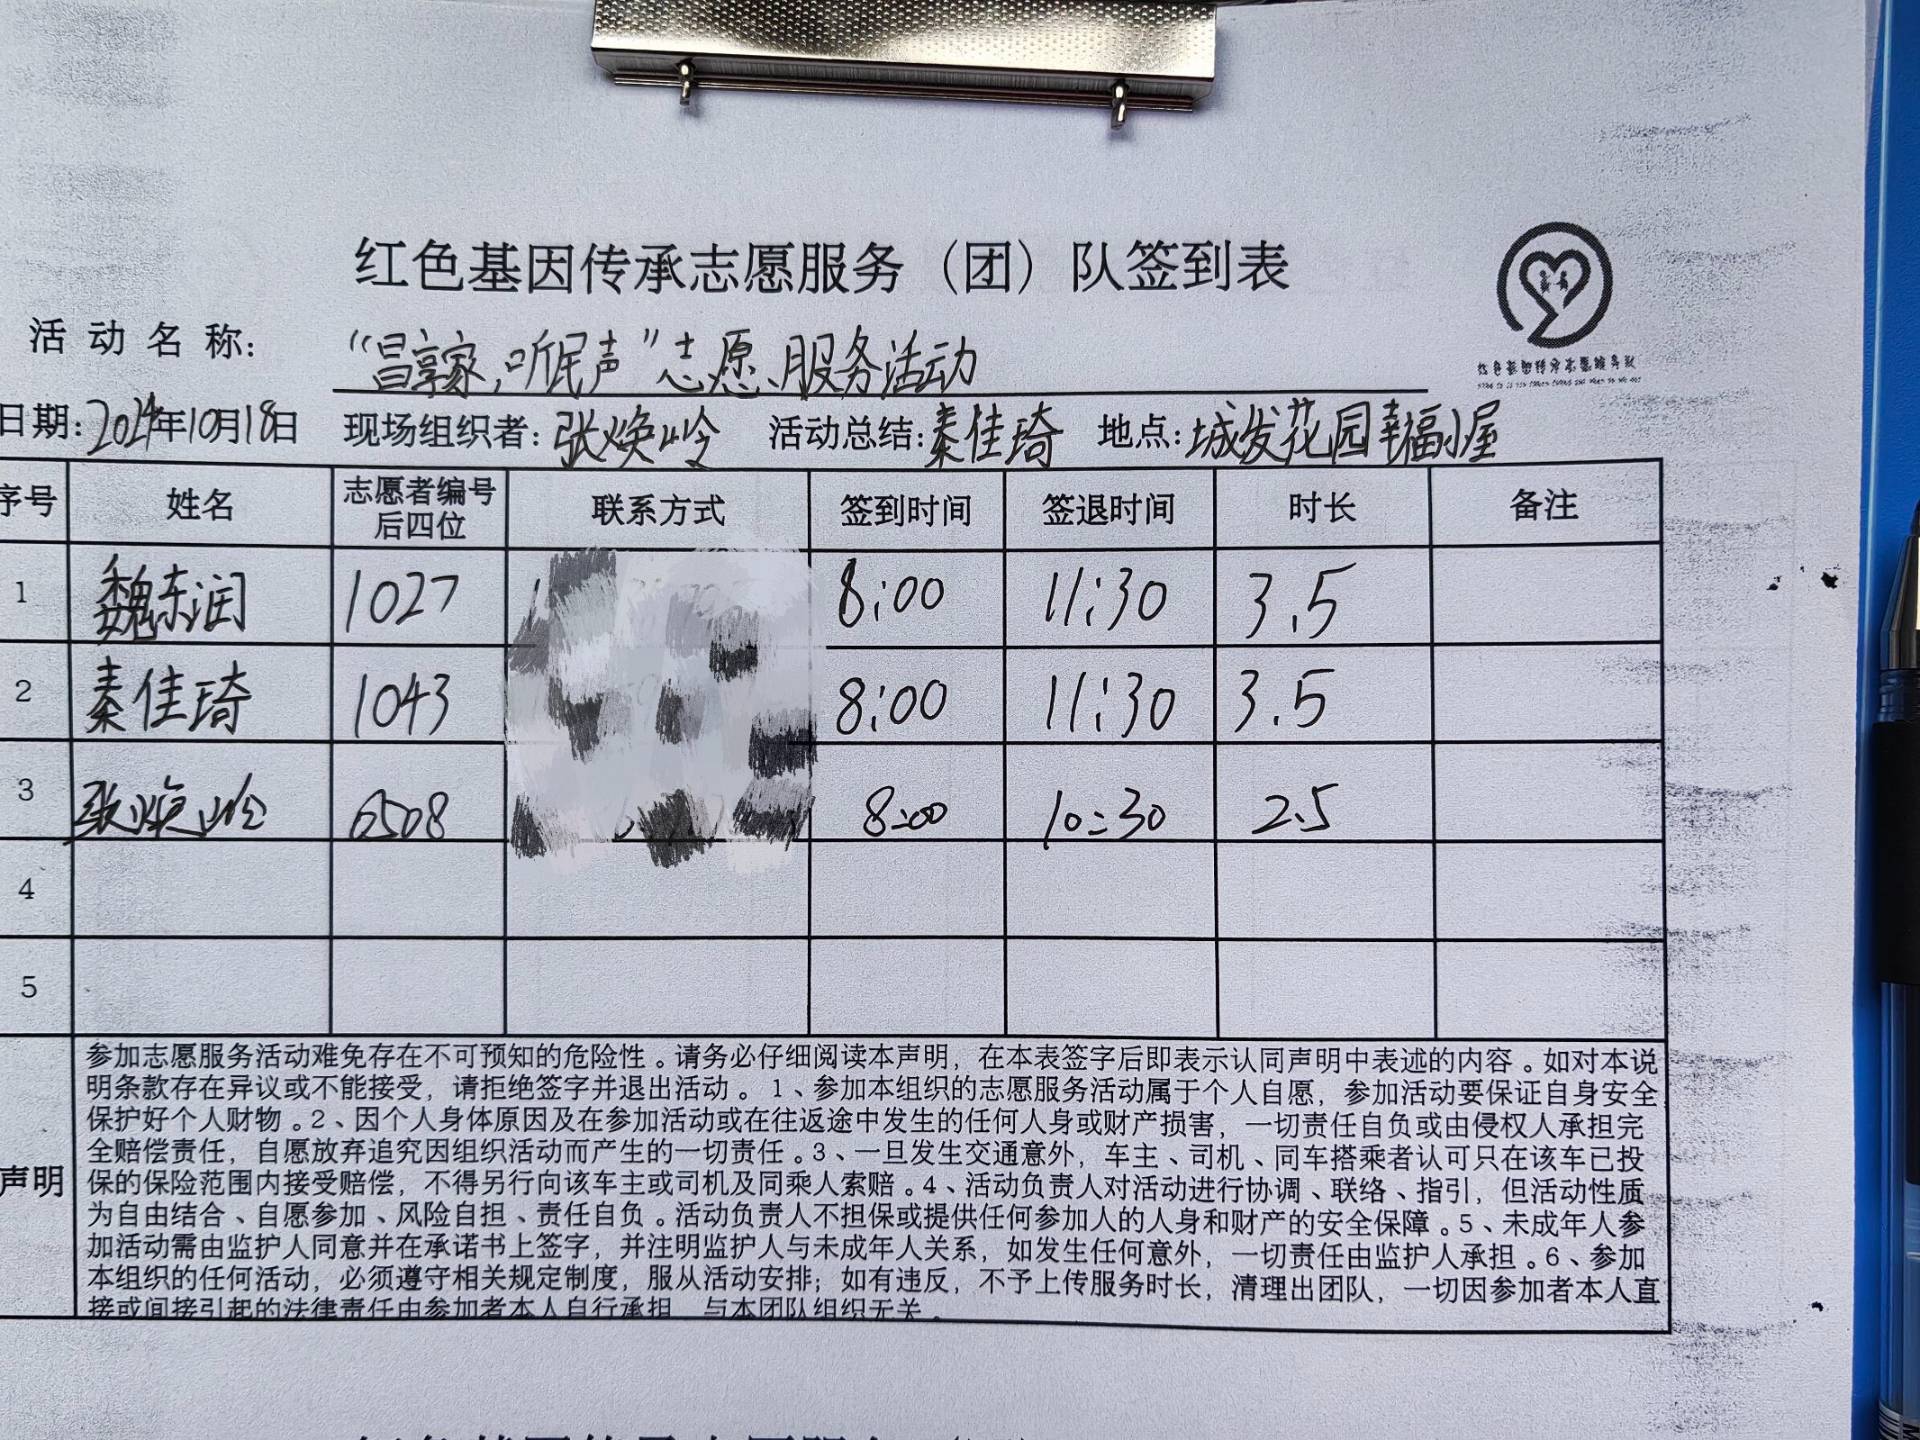 红色基因传承志愿服务（团）队签到表
活动名称：“昌享家，听民声”志愿服务活动
日期：2024年10月18日 现场组织者：张焕岭 活动总结：秦佳琦 地点：城发花园幸福小屋
序号 姓名 志愿者编号后四位 联系方式 签到时间 签退时间 时长 备注
1 魏东润 1027 8:00 11:30 3.5
2 秦佳琦 1043 8:00 11:30 3.5
3 张焕岭 6508 8:00 10:30 2.5
4
5
声明
参加志愿服务活动难免存在不可预知的危险性。请务必仔细阅读本声明，在本表签字后即表示认同声明中表述的内容。如对本说
明条款存在异议或不能接受，请拒绝签字并退出活动。1、参加本组织的志愿服务活动属于个人自愿，参加活动要保证自身安全
保护好个人财物。2、因个人身体原因及在参加活动或在往返途中发生的任何人身或财产损害，一切责任自负或由侵权人承担完
全赔偿责任，自愿放弃追究因组织活动而产生的一切责任。3、一旦发生交通意外，车主、司机、同车搭乘者认可只在该车已投
保的保险范围内接受赔偿，不得另行向该车主或司机及同乘人索赔。4、活动负责人对活动进行协调、联络、指引，但活动性质
为自由结合、自愿参加、风险自担、责任自负。活动负责人不担保或提供任何参加人的人身和财产的安全保障。5、未成年人参
加活动需由监护人同意并在承诺书上签字，并注明监护人与未成年人关系，如发生任何意外，一切责任由监护人承担。6、参加
本组织的任何活动，必须遵守相关规定制度，服从活动安排；如有违反，不予上传服务时长，清理出团队，一切因参加者本人直
接或间接引起的法律责任由参加者本人自行承担，与本团队组织无关。